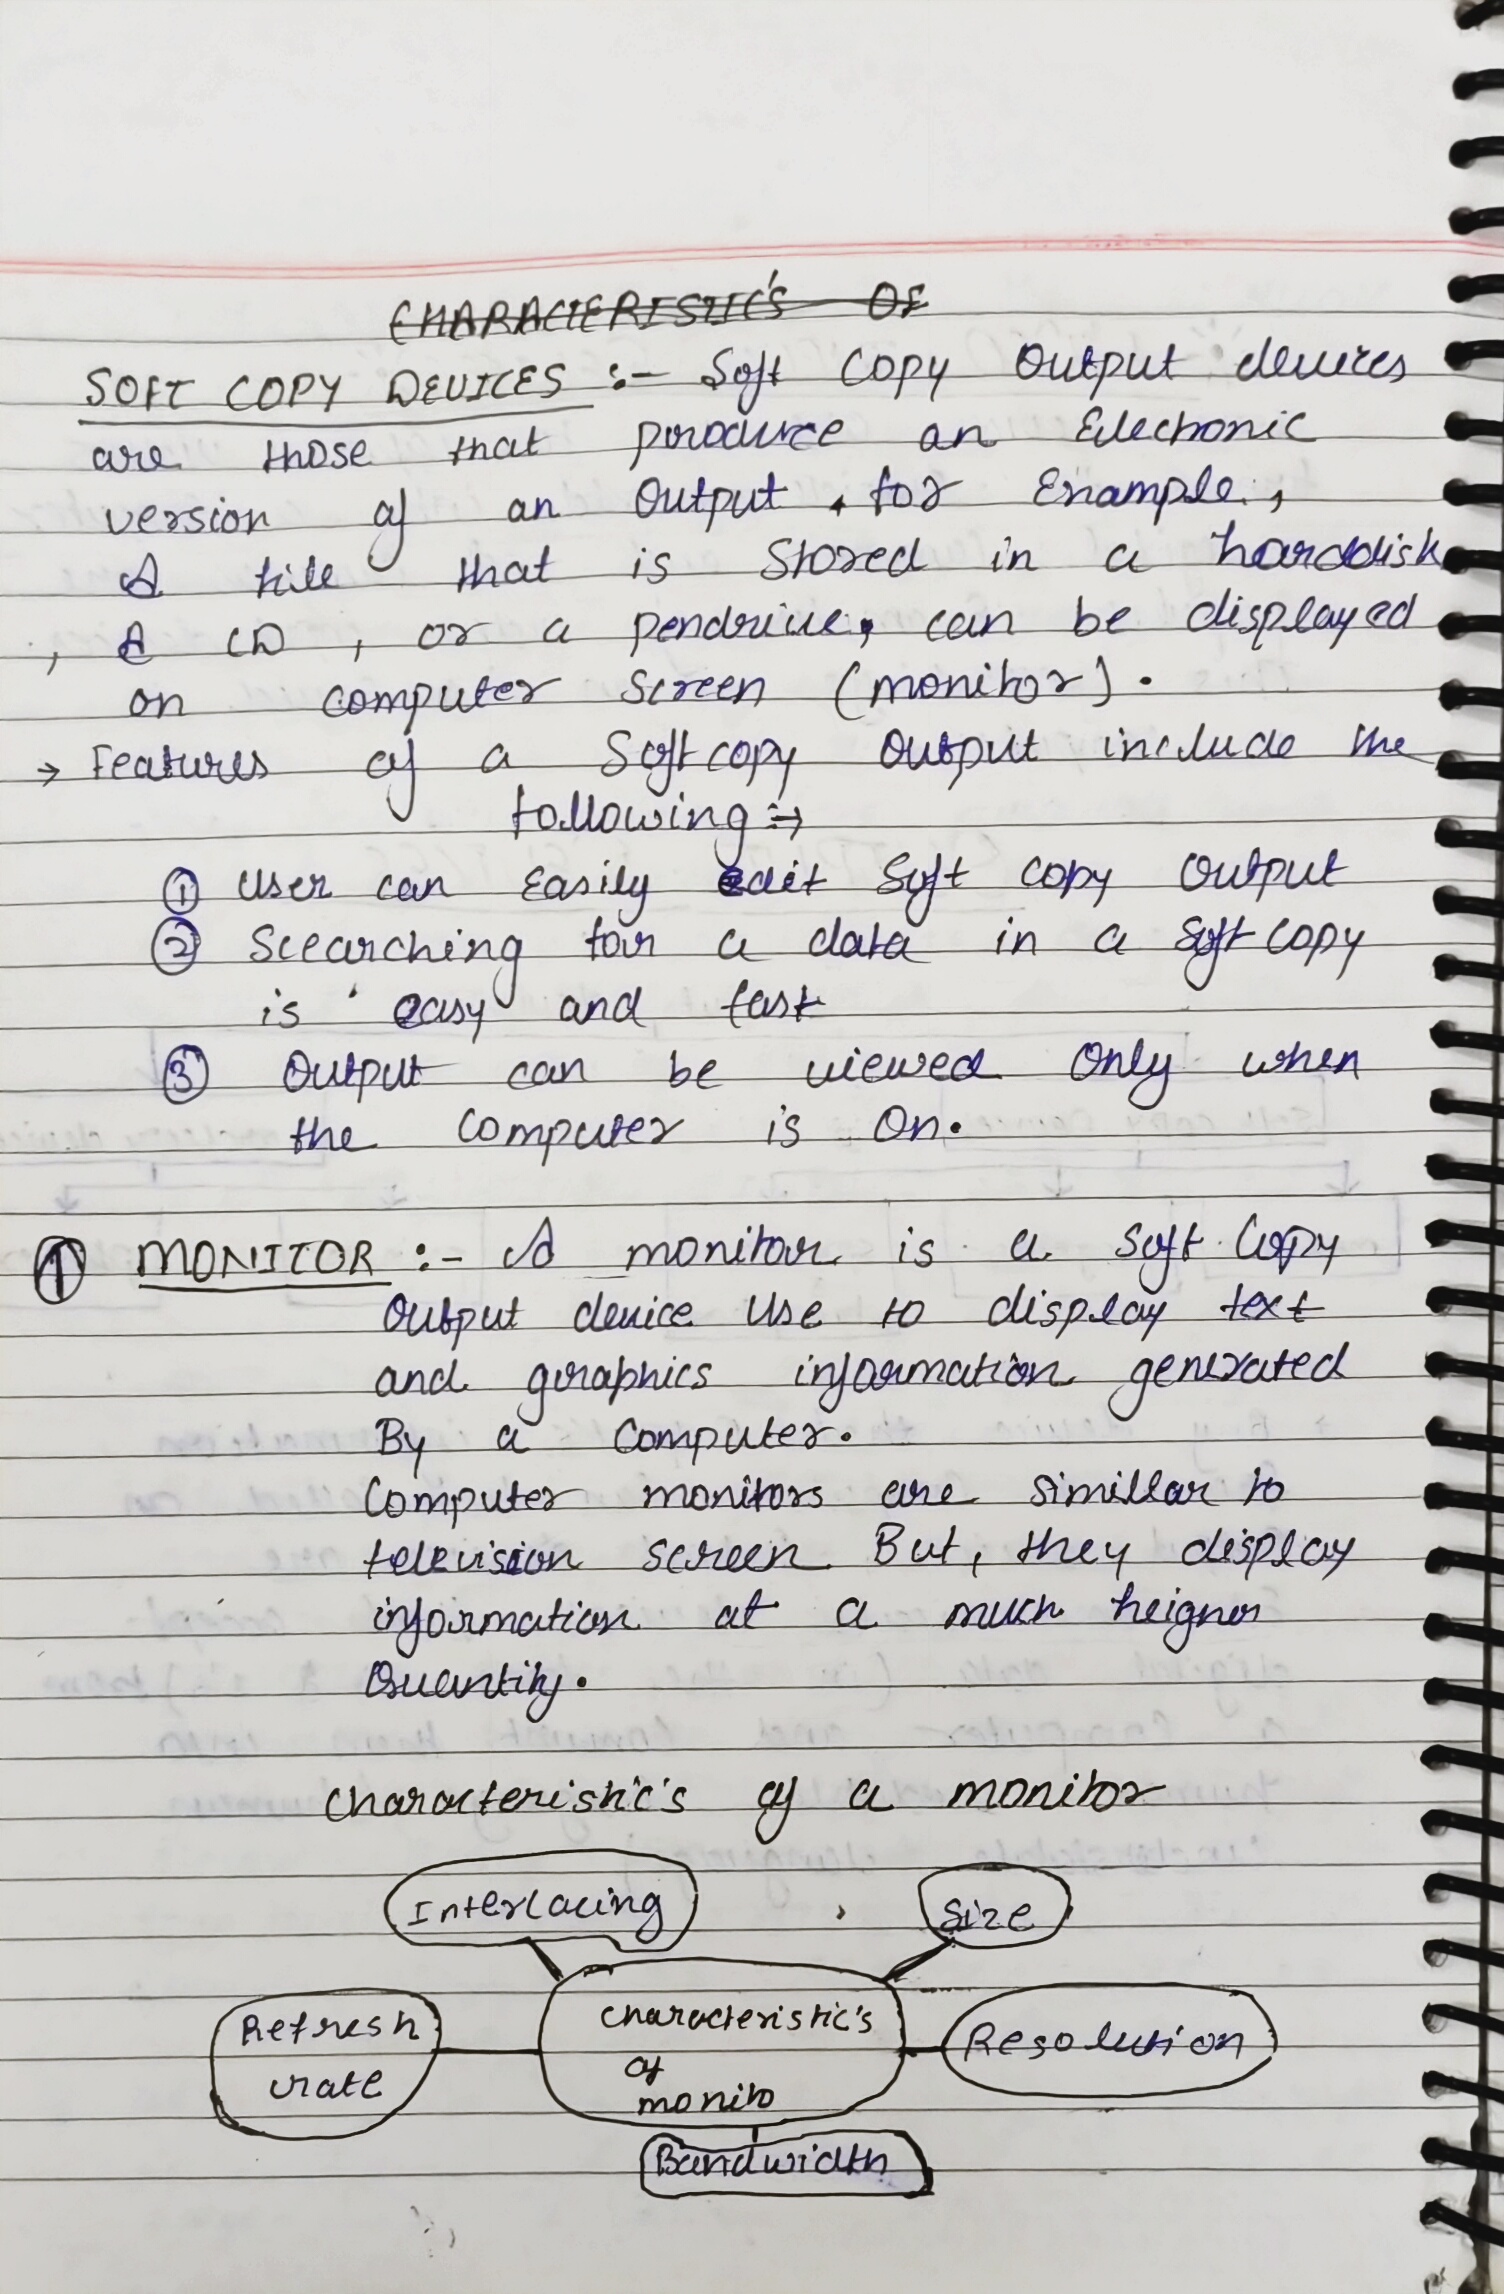 CHARACTERISTIC'S OF
SOFT COPY DEVICES :- Soft Copy Output devices
are those that produce an Electronic
version of an Output. for Example.,
A file that is Stored in a harddisk
, A CD, or a pendrive, can be displayed
on computer Screen (monitor).
→ Features of a Soft copy Output include the
following ⇒
① User can Easily edit Soft copy Output
② Scearching for a data in a Soft copy
is easy and fast
③ Output can be viewed Only when
the computer is On.
① MONITOR :- A monitor is a Soft Copy
Output device Use to display text
and graphics information generated
By a Computer.
Computer monitors are simillar to
television screen. But, they display
information at a much heigher
Quantity.
Characteristic's of a monitor
Interlacing
Size
Refresh
rate
Characteristic's
of
monito
Resolution
Bandwidth